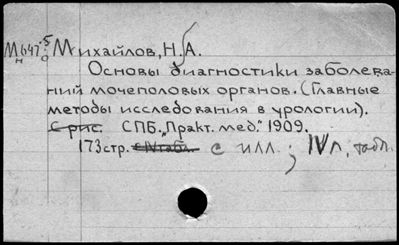 М641.5 Михайлов, Н.А.
Н о
Основы диагностики заболева-
ний мочеполовых органов. (Главные
методы исследования в урологии).
С рис. СПБ. „Практ. мед." 1909.
173 стр. с IV табл. с илл.; IV л. табл.